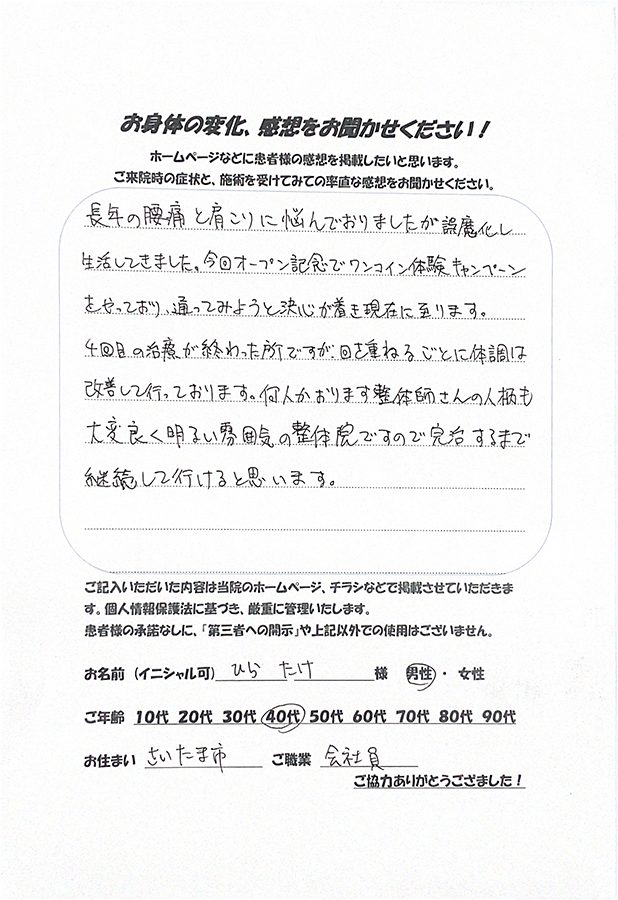 お身体の変化、感想をお聞かせください！
ホームページなどに患者様の感想を掲載したいと思います。
ご来院時の症状と、施術を受けてみての率直な感想をお聞かせください。
長年の腰痛と肩こりに悩んでおりましたが誤魔化し
生活してきました。今回オープン記念でワンコイン体験キャンペーン
をやっており、通ってみようと決心が着き現在に至ります。
4回目の治療が終わった所ですが、回を重ねるごとに体調は
改善して行っております。何人かおります整体師さんの人柄も
大変良く明るい雰囲気の整体院ですので完治するまで
継続して行けると思います。
ご記入いただいた内容は当院のホームページ、チラシなどで掲載させていただきま
す。個人情報保護法に基づき、厳重に管理いたします。
患者様の承諾なしに、「第三者への開示」や上記以外での使用はございません。
お名前（イニシャル可） ひら たけ 様 男性・女性
ご年齢 10代 20代 30代 40代 50代 60代 70代 80代 90代
お住まい さいたま市 ご職業 会社員
ご協力ありがとうござました！